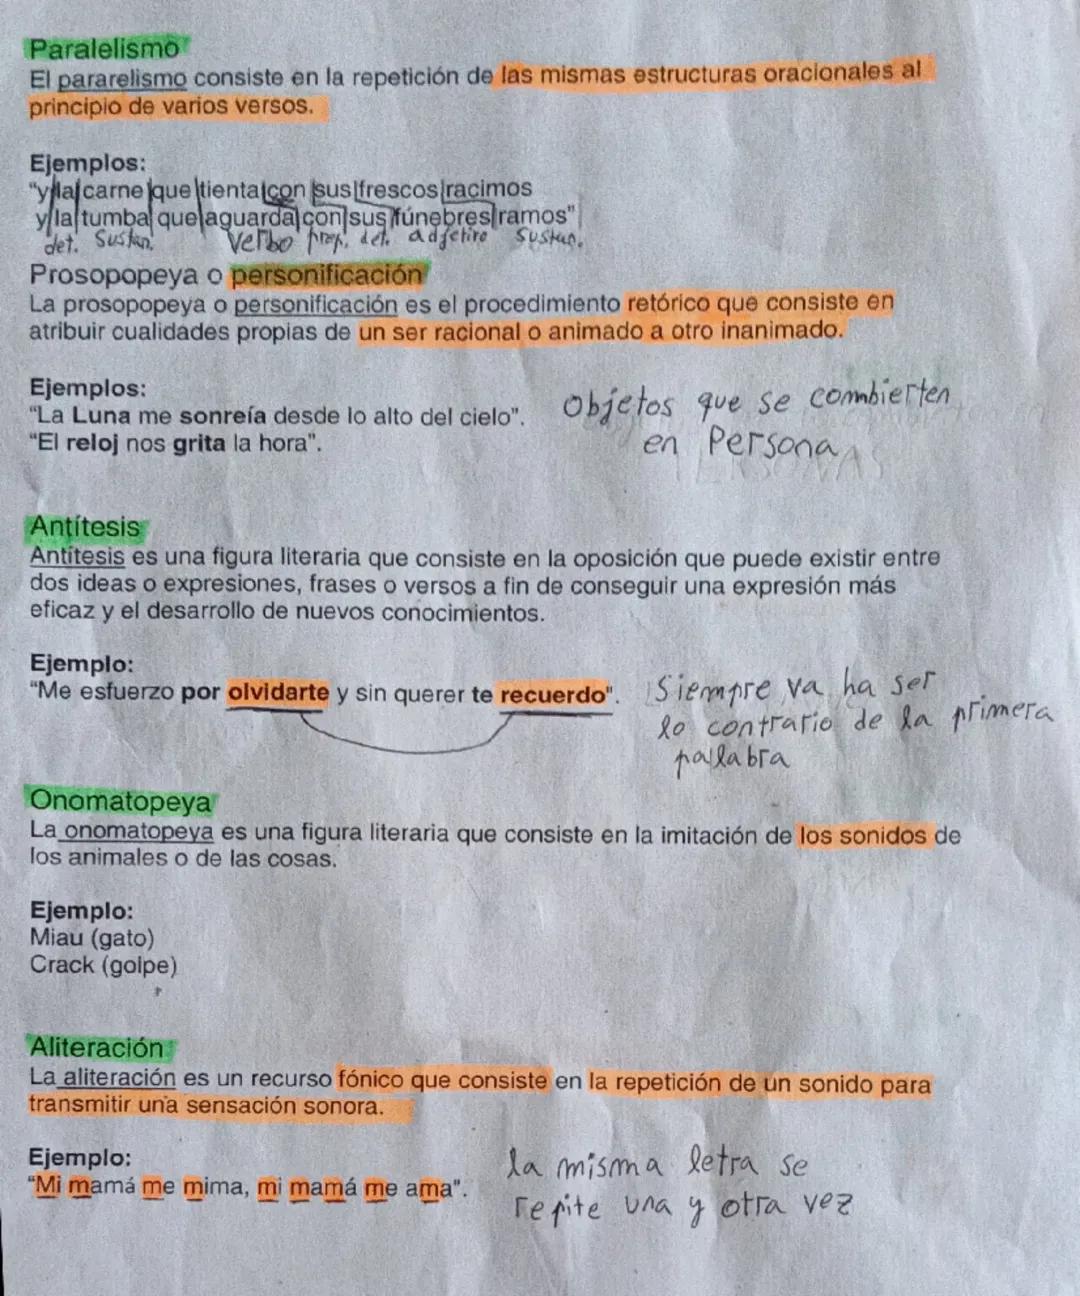 Paralelismo
El pararelismo consiste en la repetición de las mismas estructuras oracionales al
principio de varios versos.
Ejemplos:
"y la carne que tienta con sus frescos racimos
y la tumba que aguarda con sus fúnebres ramos"
det. Sustan. Verbo prep. det. adjetivo Sustan.
Prosopopeya o personificación
La prosopopeya o personificación es el procedimiento retórico que consiste en
atribuir cualidades propias de un ser racional o animado a otro inanimado.
Ejemplos:
"La Luna me sonreía desde lo alto del cielo".
"El reloj nos grita la hora".
Objetos que se combierten
en Persona
Antítesis
Antítesis es una figura literaria que consiste en la oposición que puede existir entre
dos ideas o expresiones, frases o versos a fin de conseguir una expresión más
eficaz y el desarrollo de nuevos conocimientos.
Ejemplo:
"Me esfuerzo por olvidarte y sin querer te recuerdo".
Siempre va ha ser
lo contrario de la primera
palabra
Onomatopeya
La onomatopeya es una figura literaria que consiste en la imitación de los sonidos de
los animales o de las cosas.
Ejemplo:
Miau (gato)
Crack (golpe)
Aliteración
La aliteración es un recurso fónico que consiste en la repetición de un sonido para
transmitir una sensación sonora.
Ejemplo:
"Mi mamá me mima, mi mamá me ama".
la misma letra se
repite una y otra vez